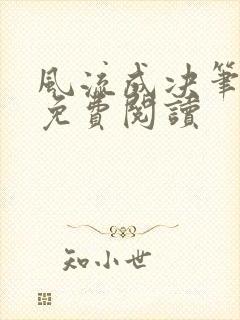 風流成决筆
免費閱讀
知小世